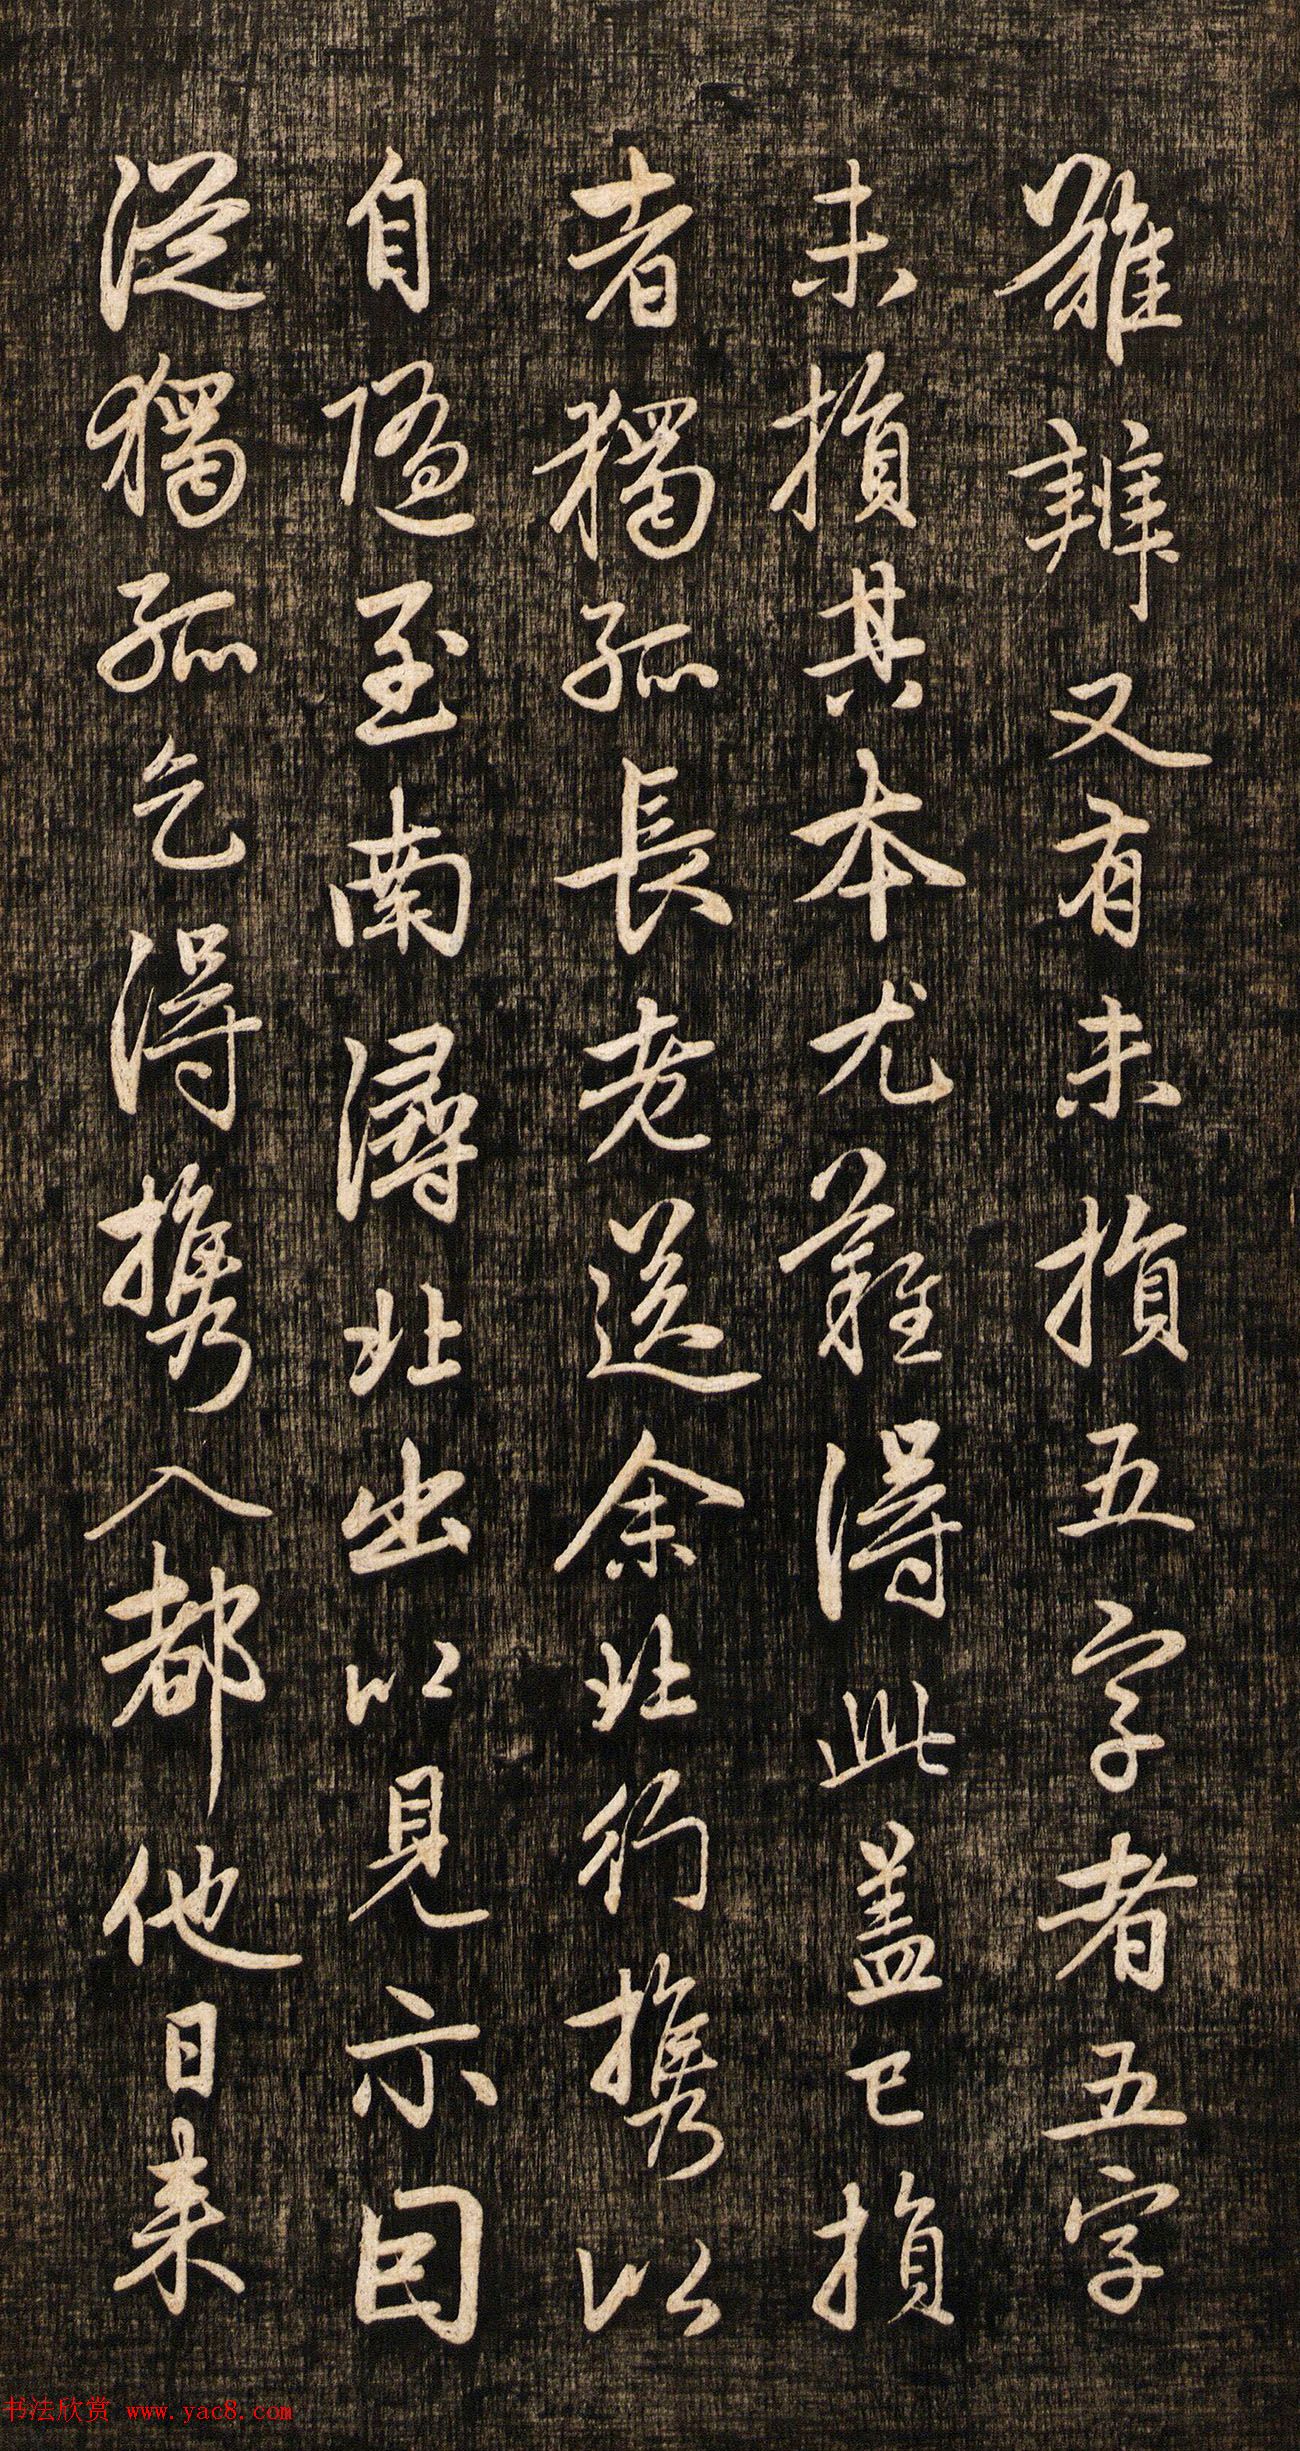 難辨又有未損五字者五字
未損其本尤難得此盖已損
者獨孤長老送余北行攜以
自隨至南潯北出以見示因
從獨孤乞得攜入都他日来
书法欣赏 www.yac8.com